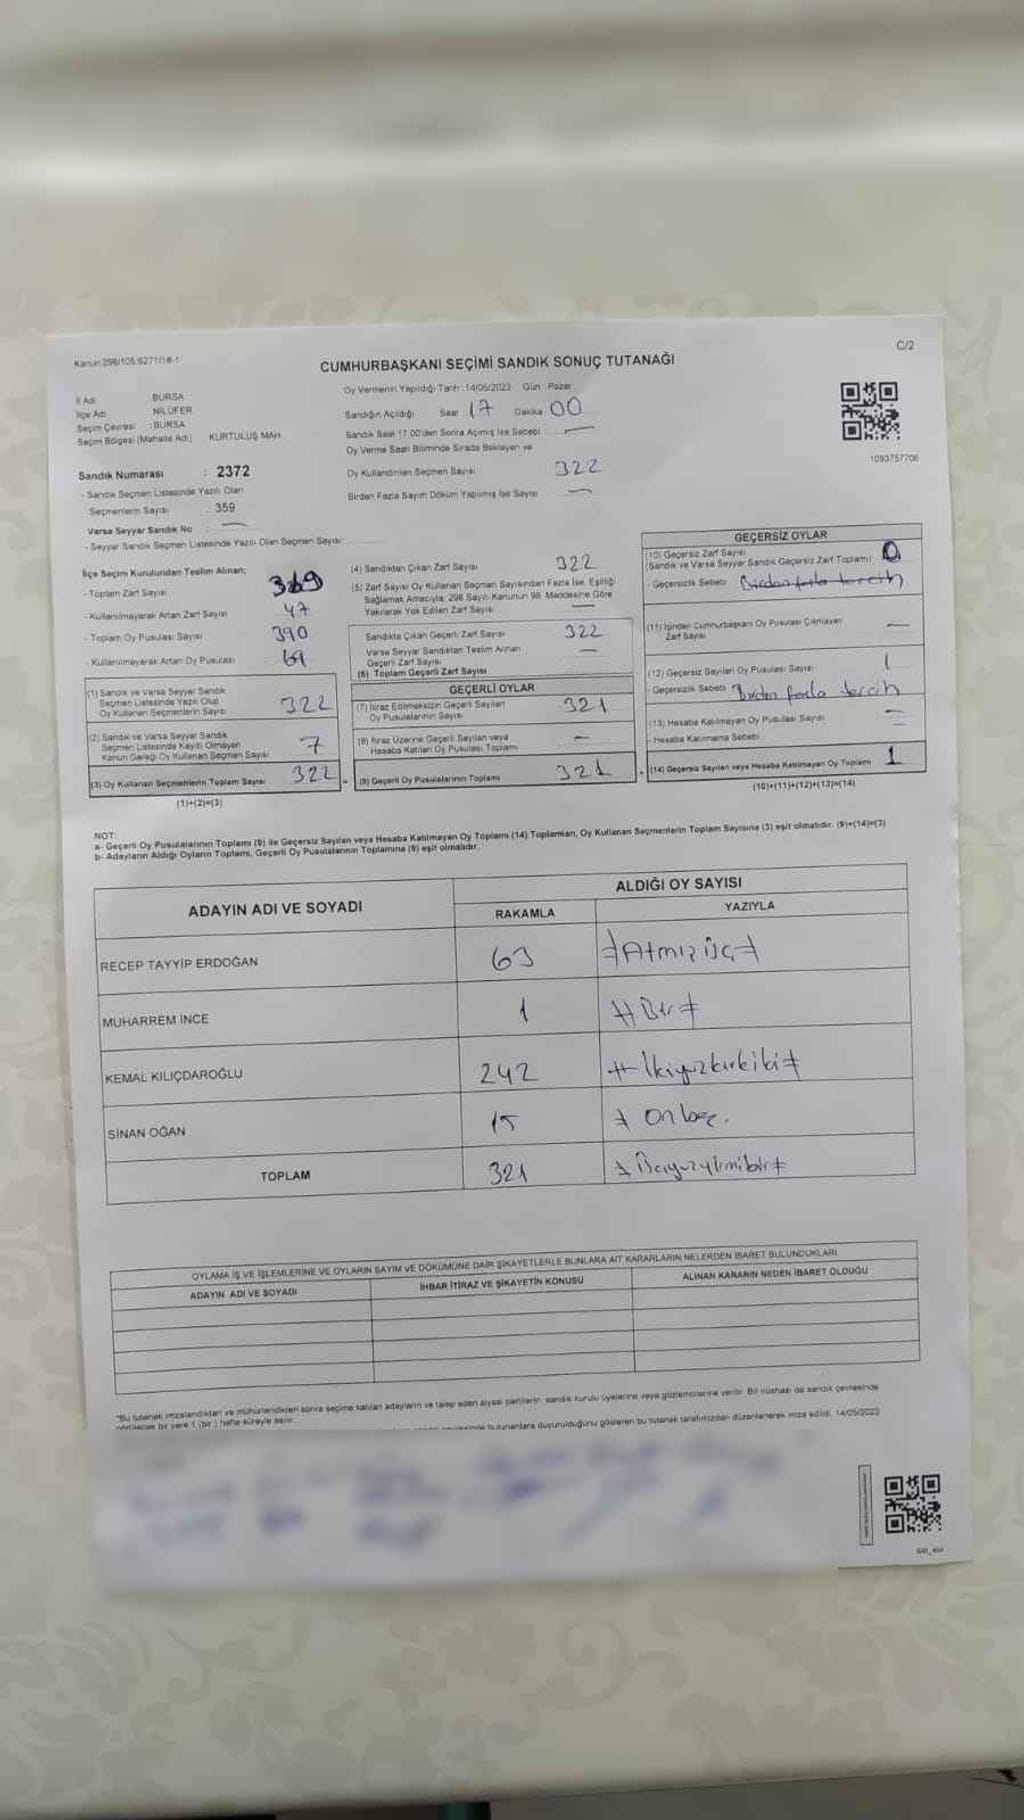 Kanun:298/105 6271/18-1
C/2
CUMHURBAŞKANI SEÇİMİ SANDIK SONUÇ TUTANAĞI
İl Adı BURSA
İlçe Adı NİLÜFER
Seçim Çevresi : BURSA
Seçim Bölgesi (Mahalle Adı) KURTULUŞ MAH.
Sandık Numarası : 2372
- Sandık Seçmen Listesinde Yazılı Olan
Seçmenlerin Sayısı 359
Varsa Seyyar Sandık No —
- Seyyar Sandık Seçmen Listesinde Yazılı Olan Seçmen Sayısı:
Oy Vermenin Yapıldığı Tarih :14/05/2023 Gün : Pazar
Sandığın Açıldığı Saat 17 Dakika 00
Sandık Saat 17:00'den Sonra Açılmış İse Sebebi : —
Oy Verme Saati Bitiminde Sırada Bekleyen ve
Oy Kullandırılan Seçmen Sayısı 322
Birden Fazla Sayım Döküm Yapılmış İse Sayısı —
1093757706
İlçe Seçim Kurulundan Teslim Alınan;
- Toplam Zarf Sayısı 369
- Kullanılmayarak Artan Zarf Sayısı 47
- Toplam Oy Pusulası Sayısı 390
- Kullanılmayarak Artan Oy Pusulası 69
(1) Sandık ve Varsa Seyyar Sandık
Seçmen Listesinde Yazılı Olup
Oy Kullanan Seçmenlerin Sayısı 322
(2) Sandık ve Varsa Seyyar Sandık
Seçmen Listesinde Kayıtlı Olmayan
Kanun Gereği Oy Kullanan Seçmen Sayısı 7
(3) Oy Kullanan Seçmenlerin Toplam Sayısı 322
(1)+(2)=(3)
(4) Sandıktan Çıkan Zarf Sayısı 322
(5) Zarf Sayısı Oy Kullanan Seçmen Sayısından Fazla İse, Eşitliği
Sağlamak Amacıyla; 298 Sayılı Kanunun 98. Maddesine Göre
Yakılarak Yok Edilen Zarf Sayısı —
Sandıkta Çıkan Geçerli Zarf Sayısı 322
Varsa Seyyar Sandıktan Teslim Alınan
Geçerli Zarf Sayısı —
(6) Toplam Geçerli Zarf Sayısı
GEÇERLİ OYLAR
(7) İtiraz Edilmeksizin Geçerli Sayılan
Oy Pusulalarının Sayısı 321
(8) İtiraz Üzerine Geçerli Sayılan veya
Hesaba Katılan Oy Pusulası Toplamı —
(9) Geçerli Oy Pusulalarının Toplamı 321
GEÇERSİZ OYLAR
(10) Geçersiz Zarf Sayısı
(Sandık ve Varsa Seyyar Sandık Geçersiz Zarf Toplamı) 0
- Geçersizlik Sebebi Birden fazla tercih
(11) İçinden Cumhurbaşkanı Oy Pusulası Çıkmayan
Zarf Sayısı —
(12) Geçersiz Sayılan Oy Pusulası Sayısı 1
- Geçersizlik Sebebi Birden fazla tercih
(13) Hesaba Katılmayan Oy Pusulası Sayısı —
- Hesaba Katılmama Sebebi —
(14) Geçersiz Sayılan veya Hesaba Katılmayan Oy Toplamı 1
(10)+(11)+(12)+(13)=(14)
NOT:
a- Geçerli Oy Pusulalarının Toplamı (9) ile Geçersiz Sayılan veya Hesaba Katılmayan Oy Toplamı (14) Toplamları, Oy Kullanan Seçmenlerin Toplam Sayısına (3) eşit olmalıdır. (9)+(14)=(3)
b- Adayların Aldığı Oyların Toplamı, Geçerli Oy Pusulalarının Toplamına (9) eşit olmalıdır.
ADAYIN ADI VE SOYADI ALDIĞI OY SAYISI
RAKAMLA YAZIYLA
RECEP TAYYİP ERDOĞAN 63 #Atmışüç#
MUHARREM İNCE 1 #Bir#
KEMAL KILIÇDAROĞLU 242 #İkiyüzkırkiki#
SİNAN OĞAN 15 # Onbeş.
TOPLAM 321 #
OYLAMA İŞ VE İŞLEMLERİNE VE OYLARIN SAYIM VE DÖKÜMÜNE DAİR ŞİKAYETLERLE BUNLARA AİT KARARLARIN NELERDEN İBARET BULUNDUKLARI
ADAYIN ADI VE SOYADI İHBAR İTİRAZ VE ŞİKAYETİN KONUSU ALINAN KARARIN NEDEN İBARET OLDUĞU
*Bu tutanak imzalandıktan ve mühürlendikten sonra seçime katılan adayların ve talep eden siyasi partilerin sandık kurulu üyelerine veya gözlemcilerine verilir. Bir nüshası da sandık çevresinde
görülecek bir yere 1 (bir) hafta süreyle asılır.
bulunanlara duyurulduğunu gösteren bu tutanak tarafımızdan düzenlenerek imza edildi. 14/05/2023